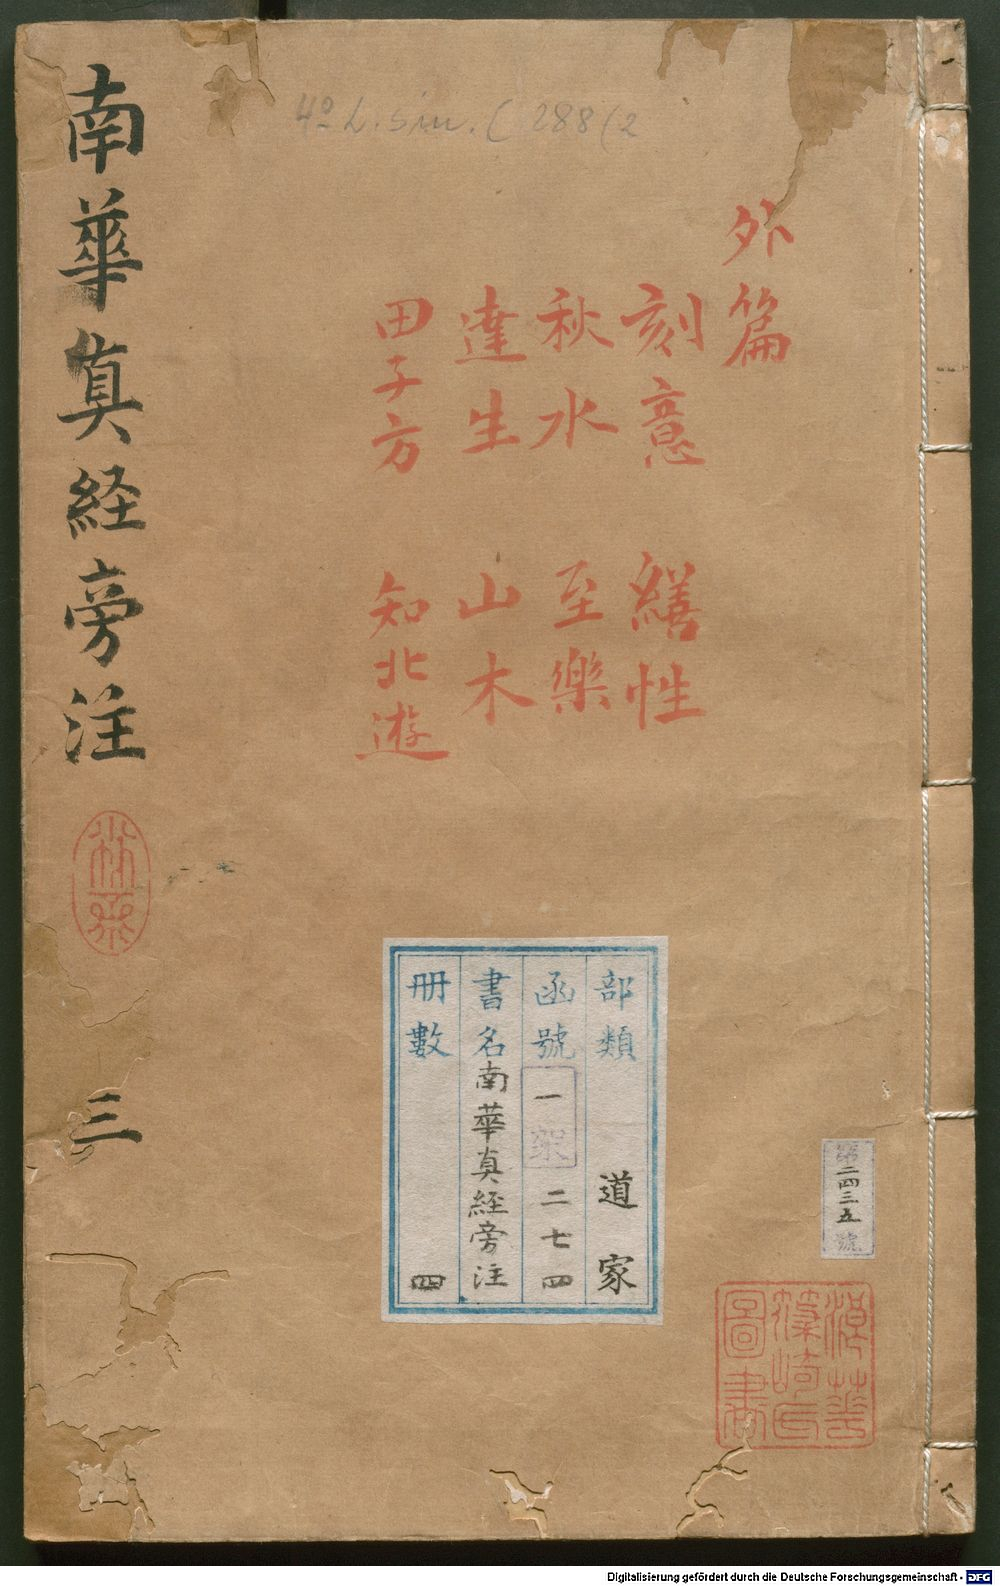 4° L. sin. C 288(2
外篇
刻意 繕性
秋水 至樂
達生 山木
田子方 知北遊
南華真経旁注
三
部類 道家
函號 一架 二七四
書名 南華真経旁注
冊數 四
第二四三五號
圖書
Digitalisierung gefördert durch die Deutsche Forschungsgemeinschaft - DFG